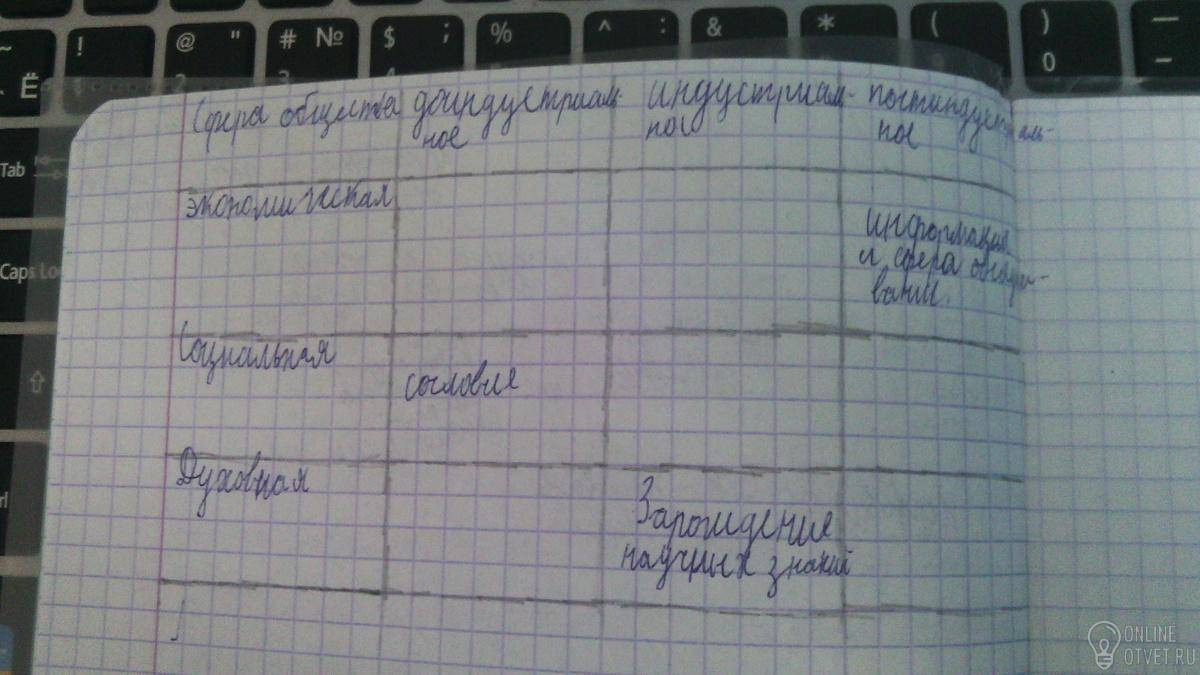 ~ ! @ " # № $ ; % ^ : & * ( ) —
Ё 2 3 4 0 –
Tab
Caps Lo
Сфера общества доиндустриаль- индустриаль- постиндустриаль-
ное ное ное
экономическая
информация
и сфера обслужи-
вания.
Социальная
сословия
Духовная
Зарождение
научных знаний
ONLINE
OTVET.RU